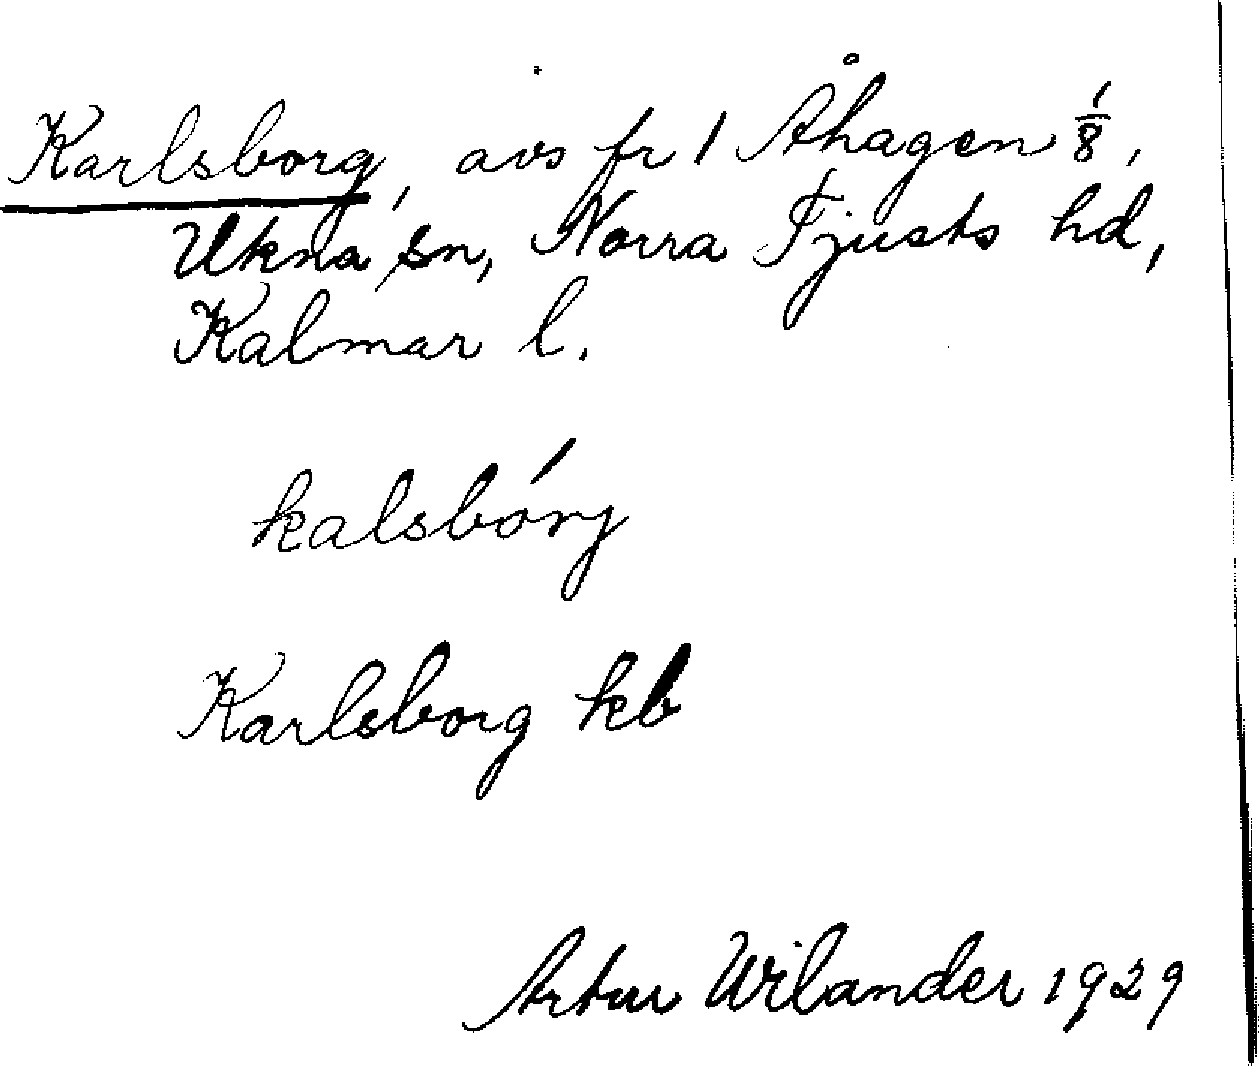 Karlsborg, avs fr 1 Åhagen 1/8,
Ukna sn, Norra Tjusts hd,
Kalmar l.
kalsbórj
Karlsborg kb
Artur Wilander 1929